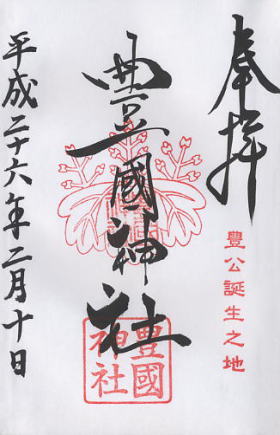 奉拝
豐公誕生之地
豊國神社
豊國
神社
平成二十六年二月十日